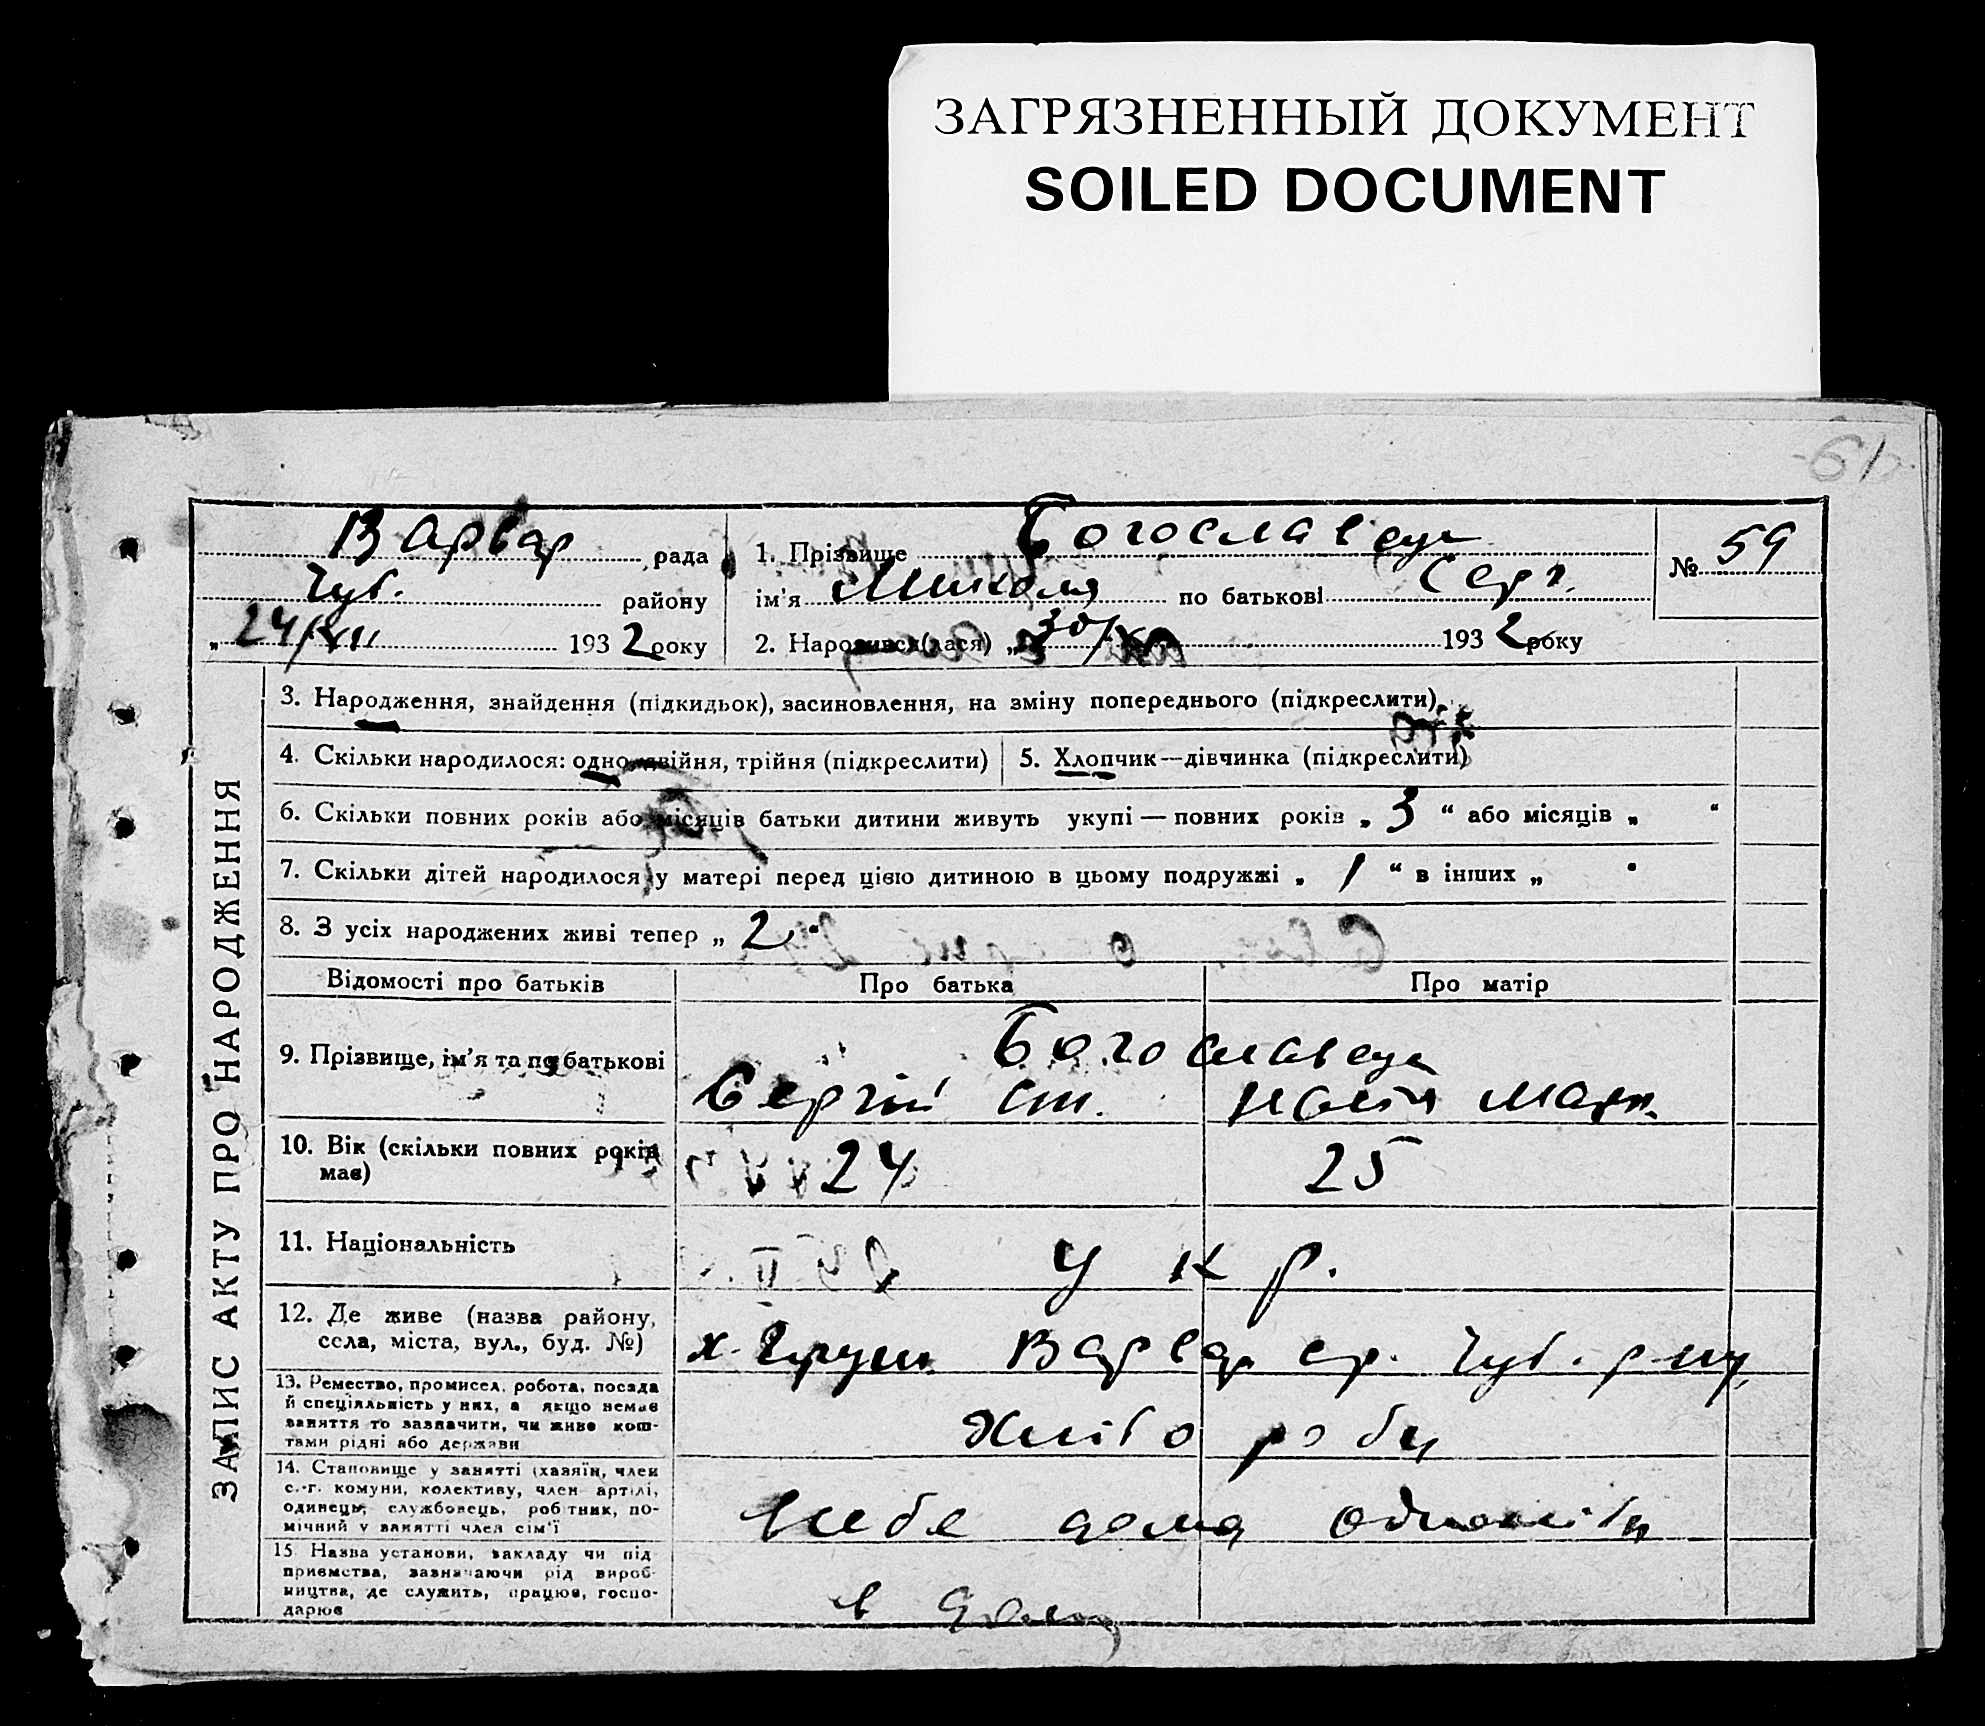 ЗАГРЯЗНЕННЫЙ ДОКУМЕНТ
SOILED DOCUMENT
61
Варвар рада
Чуб. району
„24/XII 1932 року
1. Прізвище Богославець
ім'я Микола по батькові Серг.
2. Народився(лася) „30/ 1932 року
№ 59
ЗАПИС АКТУ ПРО НАРОДЖЕННЯ
3. Народження, знайдення (підкидьок), засиновлення, на зміну попереднього (підкреслити).
4. Скільки народилося: одно, двійня, трійня (підкреслити)
5. Хлопчик—дівчинка (підкреслити)
6. Скільки повних років або місяців батьки дитини живуть укупі — повних років „3“ або місяців „ “
7. Скільки дітей народилося у матері перед цією дитиною в цьому подружжі „1“ в інших „ “
8. З усіх народжених живі тепер „2“
Відомості про батьків Про батька Про матір
9. Прізвище, ім'я та по батькові
Богославець
Сергій Ст.
Марк.
10. Вік (скільки повних років має)
24 25
11. Національність
Укр.
12. Де живе (назва району,
села, міста, вул., буд. №)
х. Груш. Варвар ср. Чуб. р-ну
13. Ремество, промисел, робота, посада
й спеціяльність у них, а якщо немає
заняття то зазначити, чи живе кош-
тами рідні або держави
Хліборобы
14. Становище у занятті (хазяїн, член
с.-г. комуни, колективу, член артілі,
одинець, службовець, робітник, по-
мічний у занятті член сім'ї
себе дома
15. Назва установи, закладу чи під
приємства, зазначаючи рід вироб-
ництва, де служить, працює, госпо-
дарює
в